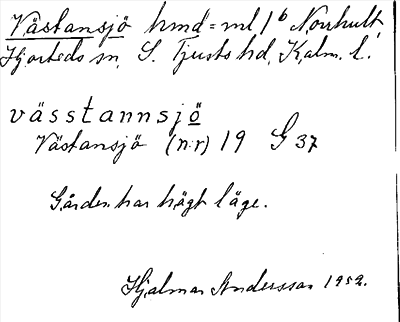 Västansjö hmd = ml 1b Norrhult
Hjorteds sn, S. Tjusts hd, Kalm. l.
vässtannsjö
Västansjö (n:r) 19 G 37
Gården har högt läge.
Hjalmar Andersson 1952.